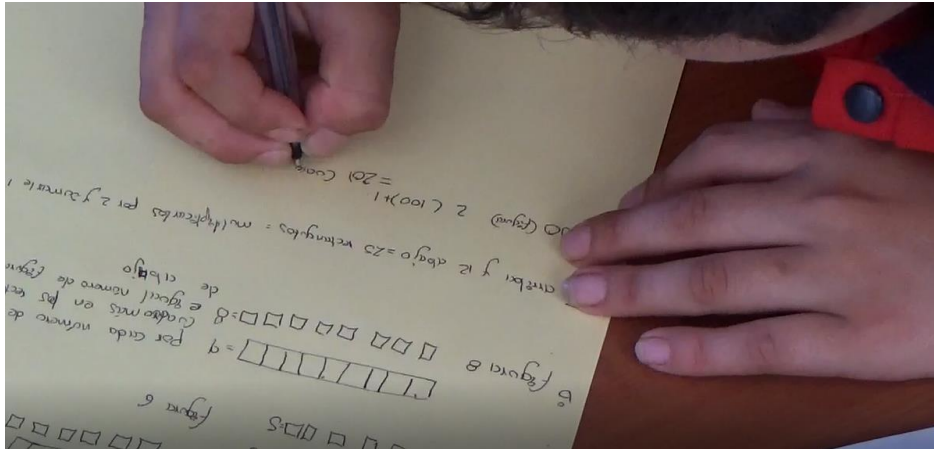 =5
Figura 6
Figura 8
= 9 por cada número de
= 8 cuadro más en los
e igual número de figura
de abajo
arriba y 12 abajo = 25 rectangulos = multiplicarlos por 2 y sumarle 1
(figura) 2 (100)+1
=201